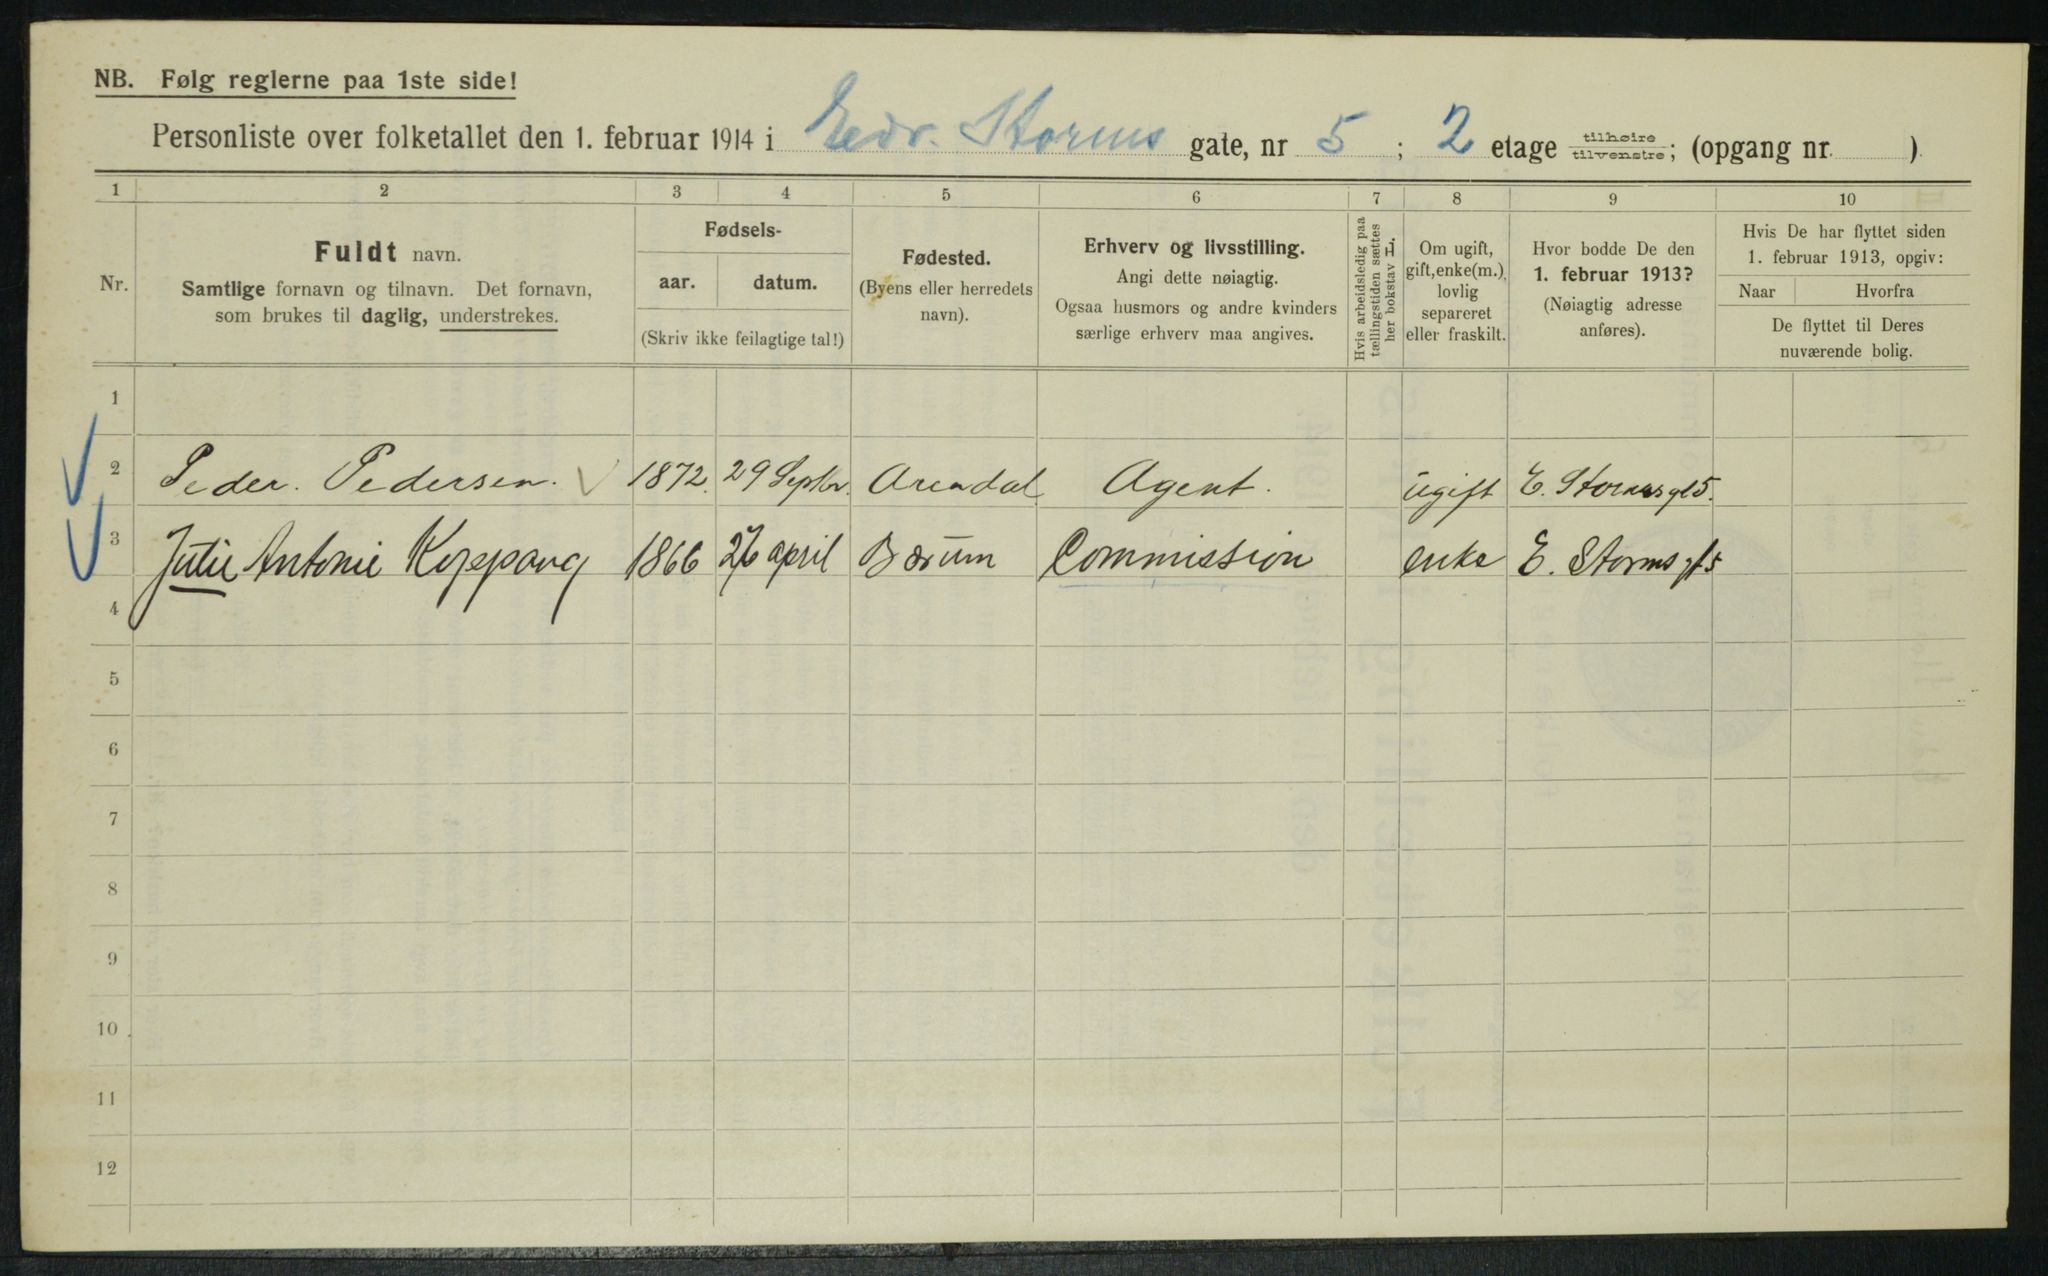 NB. Følg reglerne paa 1ste side!
Personliste over folketallet den 1. februar 1914 i Edv. Storms gate, nr 5 ; 2 etage tilhøire tilvenstre; (opgang nr. )
1 2 3 4 5 6 7 8 9 10
Nr.
Fuldt navn.
Samtlige fornavn og tilnavn. Det fornavn,
som brukes til daglig, understrekes.
Fødsels-
aar. datum.
(Skriv ikke feilagtige tal!)
Fødested.
(Byens eller herredets
navn).
Erhverv og livsstilling.
Angi dette nøiagtig.
Ogsaa husmors og andre kvinders
særlige erhverv maa angives.
Hvis arbeidsledig paa
tællingstiden sættes
her bokstav L.
Om ugift,
gift, enke(m.),
lovlig
separeret
eller fraskilt.
Hvor bodde De den
1. februar 1913?
(Nøiagtig adresse
anføres).
Hvis De har flyttet siden
1. februar 1913, opgiv:
Naar Hvorfra
De flyttet til Deres
nuværende bolig.
1
2 Peder. Pedersen. 1872. 29 Septbr. Arendal Agent. ugift E. Storms gt 5.
3 Julie Antonie Koppang 1866 april Bærum Commission enke E. Storms gt 5
4
5
6
7
8
9
10
11
12